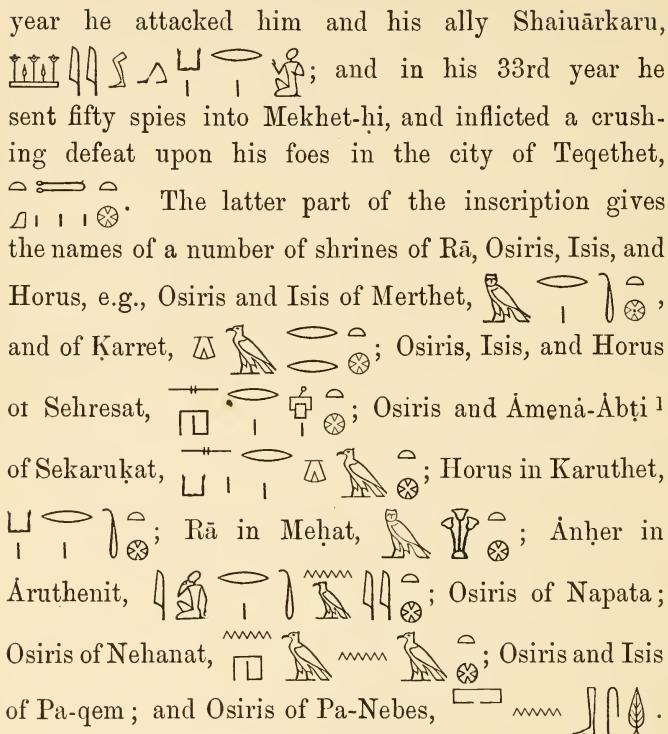 year he attacked him and his ally Shaiuārkaru,
; and in his 33rd year he
sent fifty spies into Mekhet-ḥi, and inflicted a crush-
ing defeat upon his foes in the city of Teqethet,
. The latter part of the inscription gives
the names of a number of shrines of Rā, Osiris, Isis, and
Horus, e.g., Osiris and Isis of Merthet, ,
and of Ḳarret, ; Osiris, Isis, and Horus
of Sehresat, ; Osiris and Ȧmenȧ-Ȧbṭi ¹
of Sekaruḳat, ; Horus in Karuthet,
; Rā in Meḥat, ; Ȧnḥer in
Ȧruthenit, ; Osiris of Napata;
Osiris of Nehanat, ; Osiris and Isis
of Pa-qem; and Osiris of Pa-Nebes, .